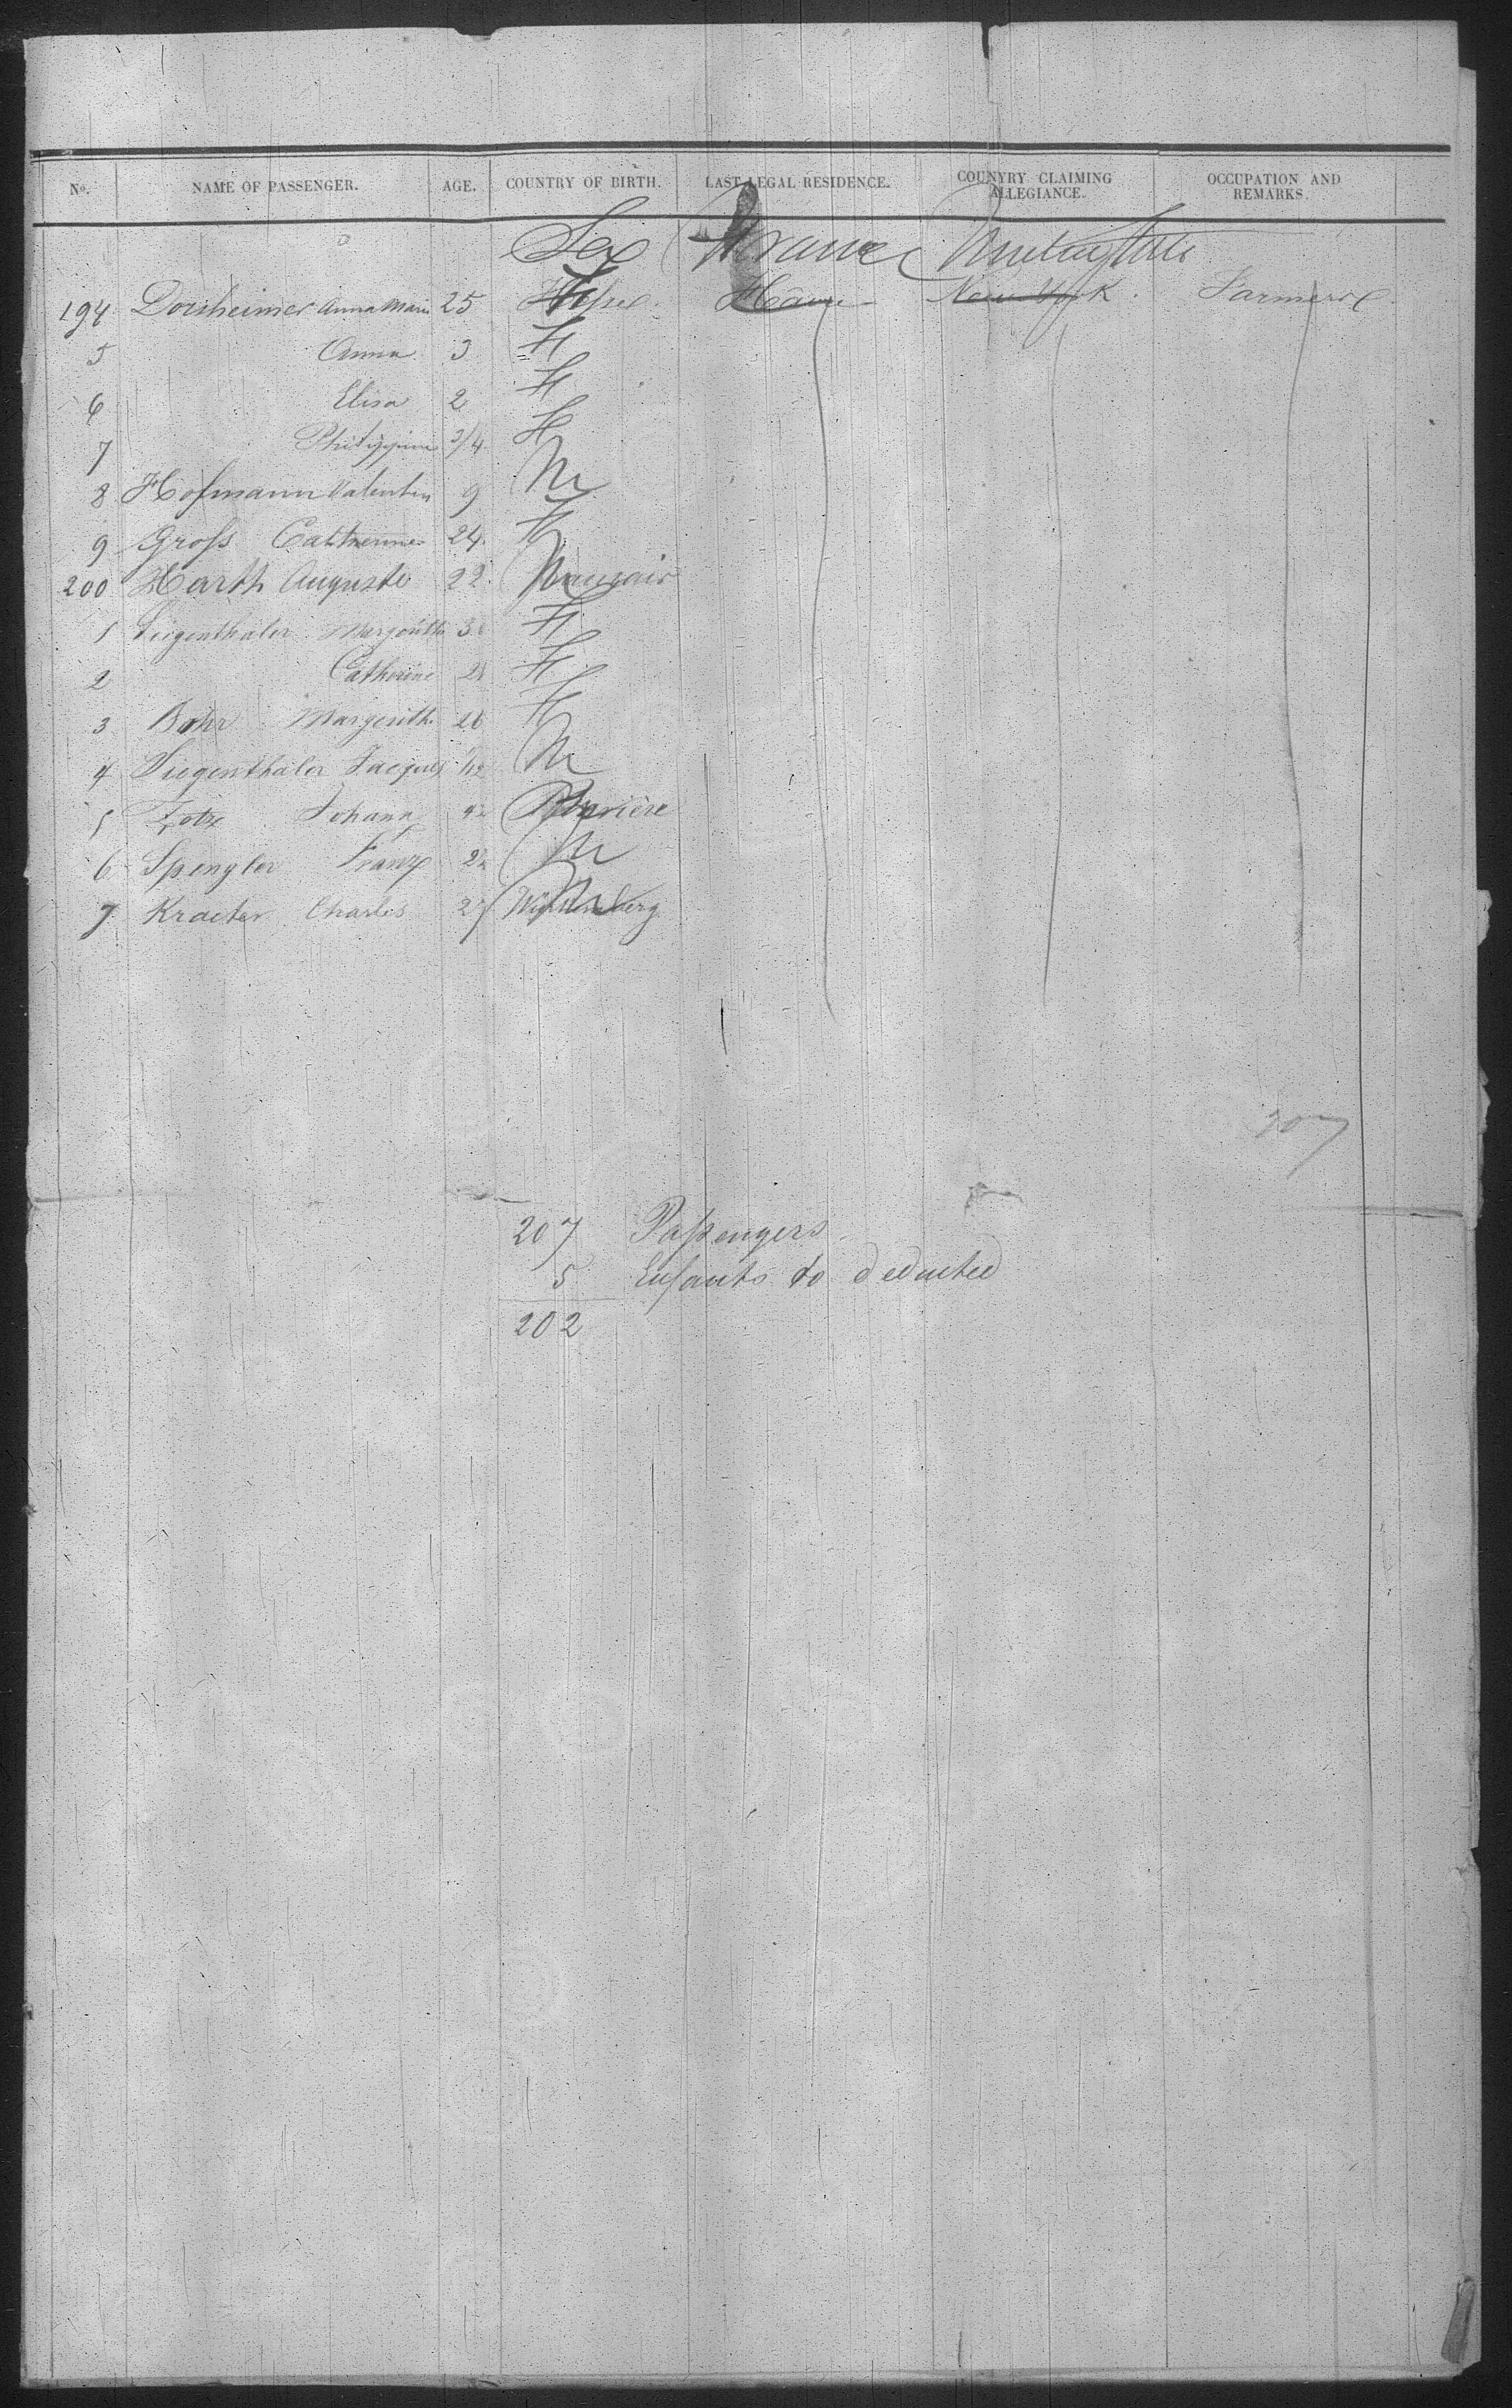 No. NAME OF PASSENGER. AGE. COUNTRY OF BIRTH. LAST LEGAL RESIDENCE. COUNYRY CLAIMING ALLEGIANCE. OCCUPATION AND REMARKS.
Sex France
194 Dorsheimer Anna Maria 25 F Hesse Havre New York Farmers
5 Anna 3 F
6 Elisa 2 F
7 3/4 F
8 Hofmann Valentin 9 M
9 Groß Catherine 24 F
200 Harth Auguste 22 Francais
1 Siegenthaler Margerith F
2 Catherine F
3 Bohr Margerith 26 F
4 Siegenthaler Jacques M
5 Johann
6 Spengler Franz M
7 Kraeter Charles 27 Würtemberg
207
207 Paßengers
5 Enfants to deducted
202